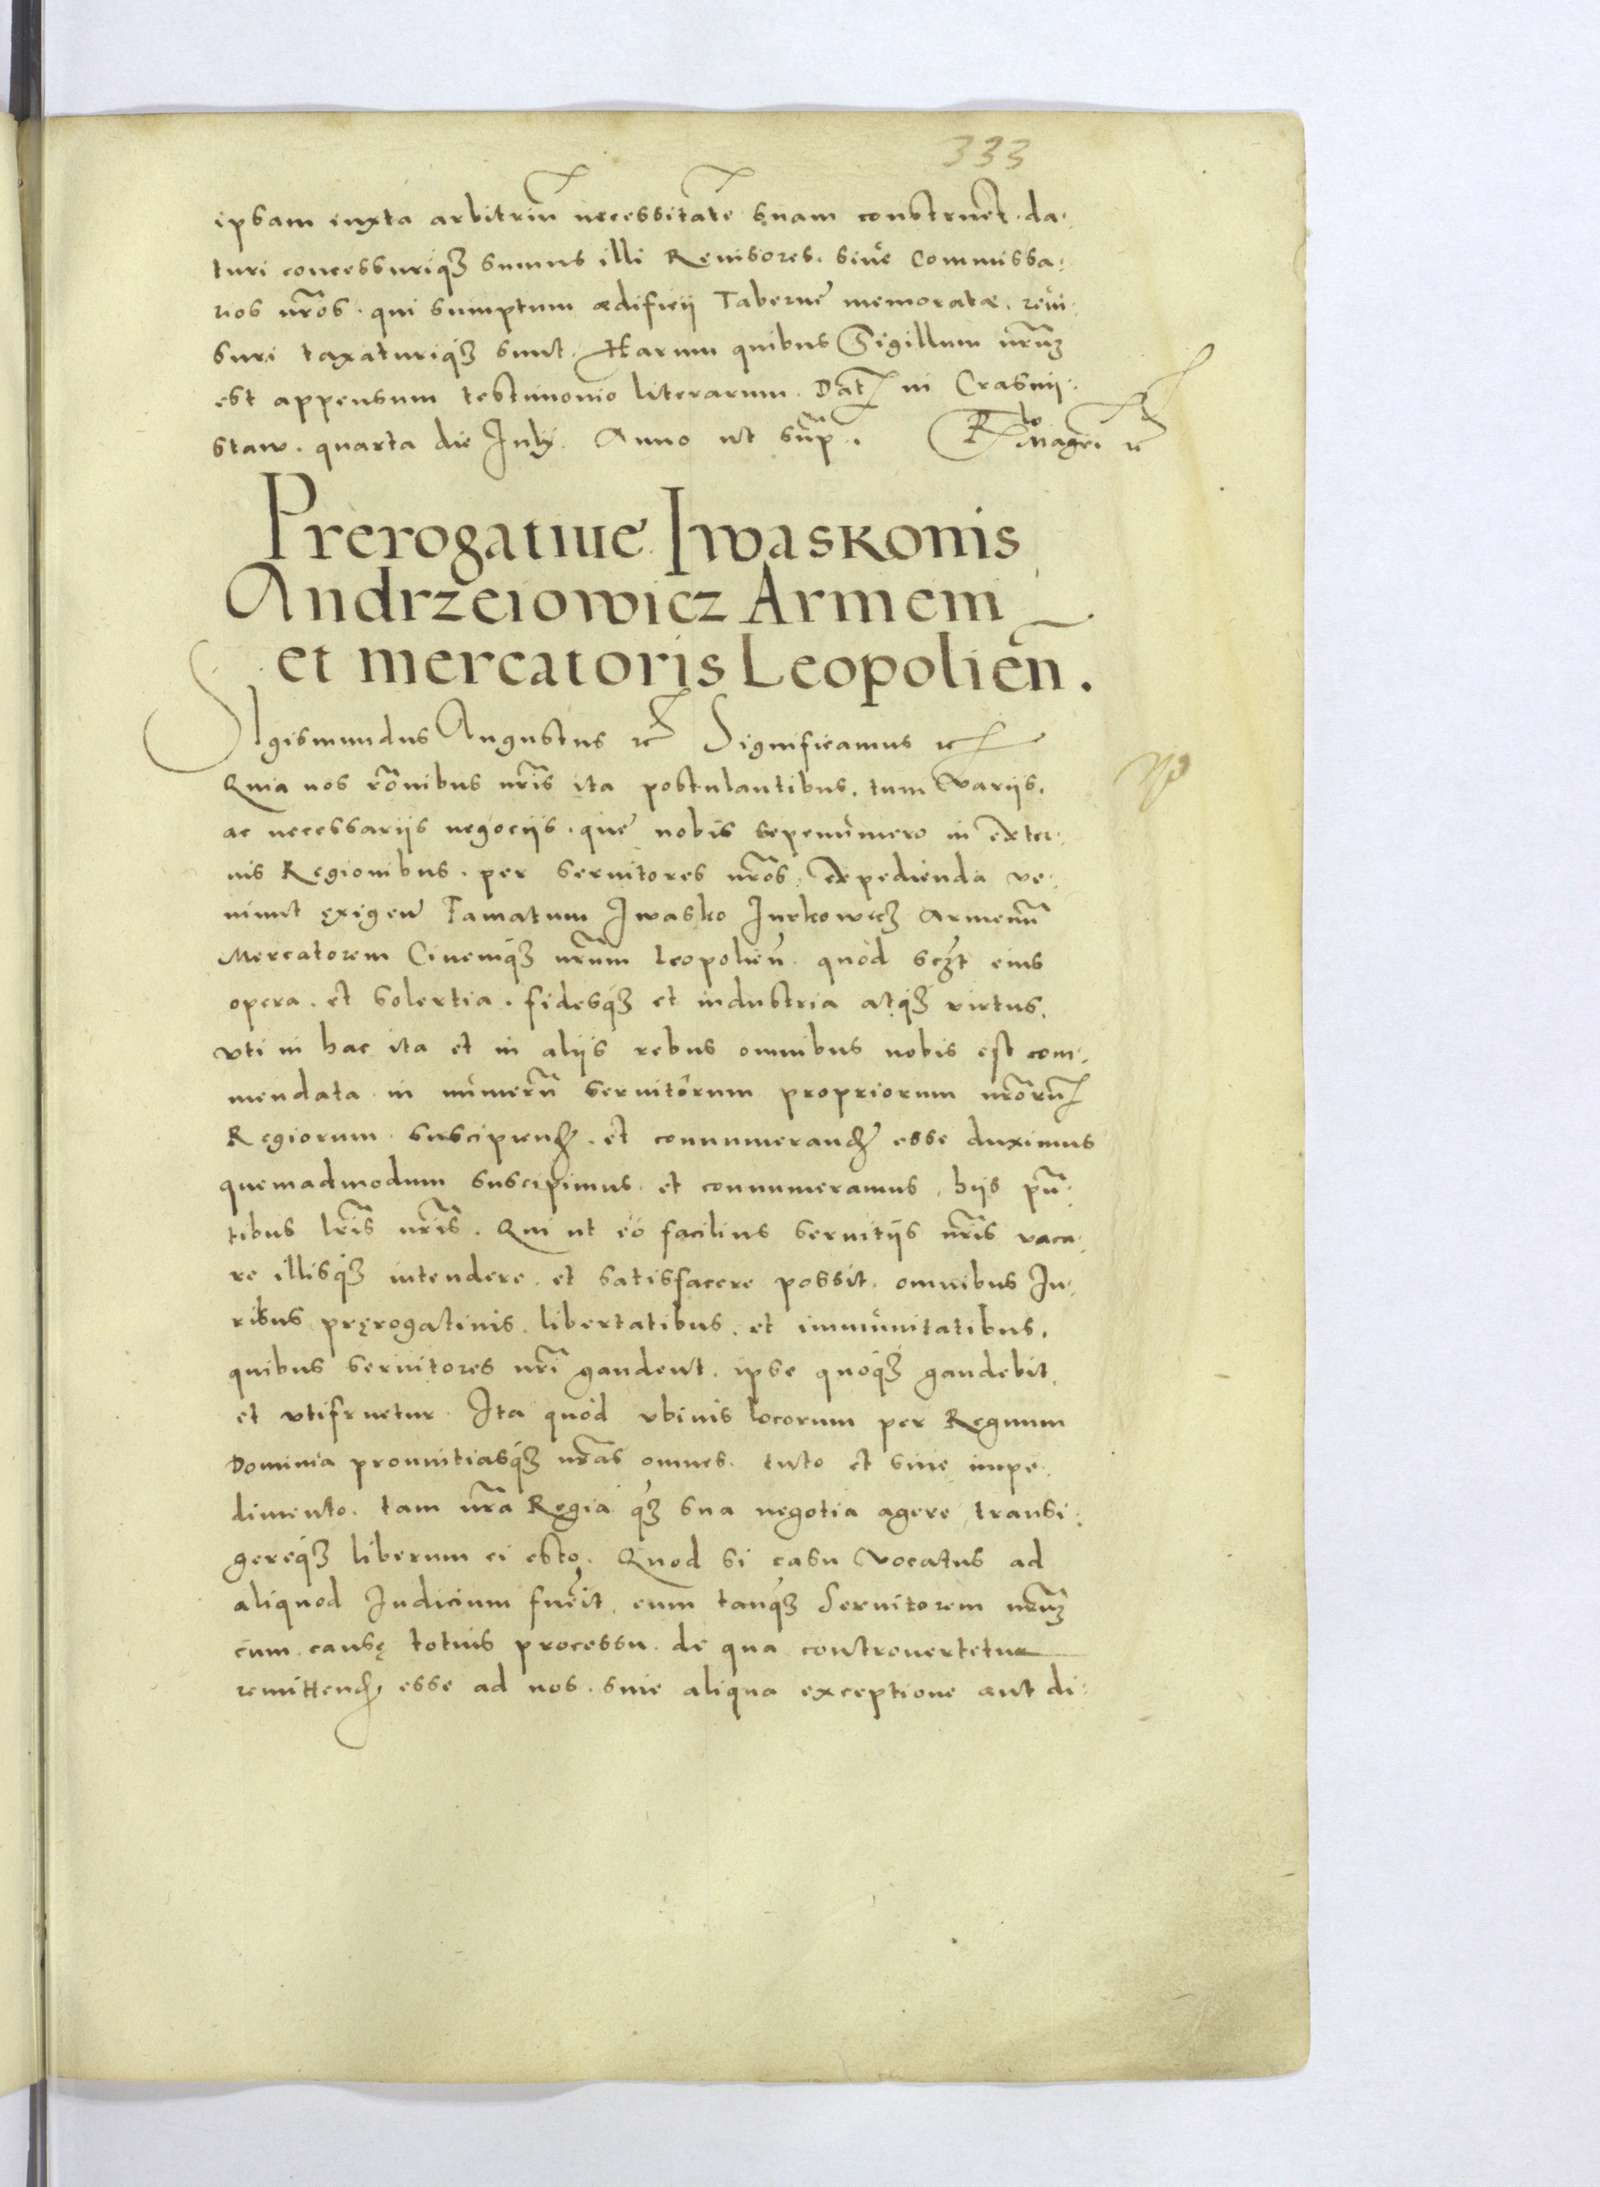 333
ipsam iuxta arbitriũ necessitatẽ suam construẽt · da·
turi concessuriqȝ sumus illi Reuisores. siue Commissa·
rios nr̃os · qui sumptum ædificii Tabernę memoratæ. reui·
suri taxaturiqȝ sunt. Harum quibus Sigillum nr̃uȝ
est appensum testimonio literarum. Dat in Crasnij·
staw. quarta die Julij. Anno ut sup̃.
Prerogatiuę Iwaskonis
Andrzeiowicz Armeni
et mercatoris Leopolień.
SIgismundus Augustus rc Significamus rc
Quia nos rõnibus nr̃is ita postulantibus. tum Variis.
ac necessariis negociis. quę nobis sępenumero in exter·
nis Regionibus. per seruitores nr̃os, expedienda ve·
niunt exigeñ Famatum Iwasko Jurkowicȝ Armenũ
Mercatorem Ciuemqȝ nr̃um Leopolień. quòd scȝt eius
opera. et solertia. fidesqȝ et industria atqȝ virtus.
vti in hac ita et in aliis rebus omnibus nobis est com·
mendata in numerũ seruitorum propriorum nr̃orũ
Regiorum suscipiend. et connumerand esse duximus
quemadmodum suscipimus et connumeramus, hijs pñ·
tibus lr̃is nr̃is. Qui ut eò facilius seruitijs nr̃is vaca·
re illisqȝ intendere. et satisfacere possit. omnibus Ju·
ribus pręrogatiuis. libertatibus. et immunitatibus.
quibus seruitores nr̃i gaudent. ipse quoqȝ gaudebit.
et vtifruetur. Ita quòd vbiuis locorum per Regnum
Dominia prouintiasqȝ nr̃as omnes. tuto et sine impe·
dimento. tam nr̃a Regia qȝ sua negotia agere transi·
gereqȝ liberum ei esto. Quod si casu vocatus ad
aliquod Iudicium fueĩt, eum tanqȝ Seruitorem nr̃uȝ
cum causę totius processu. de qua controuertetur
remittend esse ad nos. sine aliqua exceptione aut di·